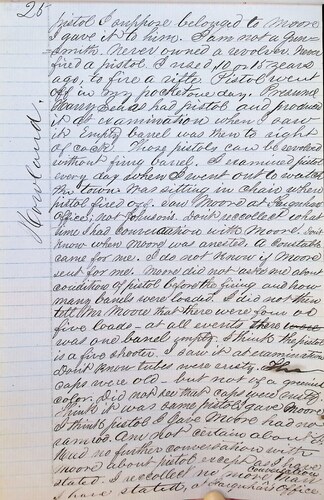 25
Howland.
pistol I suppose belonged to Moore
I gave it to him. I am not a gun-
smith. never owned a revolver. never
fired a pistol. I used 10 or 15 years
ago, to fire a rifle. Pistol went
off in my pocket one day. Presume
Harry had pistol and produced
it at examination when I saw
it. Empty barrel was then to right
of cock. Those pistols can be revolved
without firing barrel. I examined pistol
every day when I went out to watch
the town. Was sitting in chair when
pistol fired off. Saw Moore at
Office; not Johnson's. Don't recollect what
time I had conversation with Moore. Don't
know when Moore was arrested. A Constable
came for me. I do not know if Moore
sent for me. Moore did not ask me about
condition of pistol before the firing and how
many barrels were loaded. I did not then
tell Mr Moore that there were four or
five loads - at all events there
was one barrel empty. I think the pistol
is a five shooter. I saw it at examination
Don't know tubes were rusty. The
caps were old - but not of a greenish
color. Did not see that caps were rusty.
Think it was same pistol gave Moore
I think pistol I gave Moore had no
ramrod. Am not certain about it
Had no further conversation with
Moore about pistol except as I have
stated. I recollect no more conversation
than I have stated, at Office.